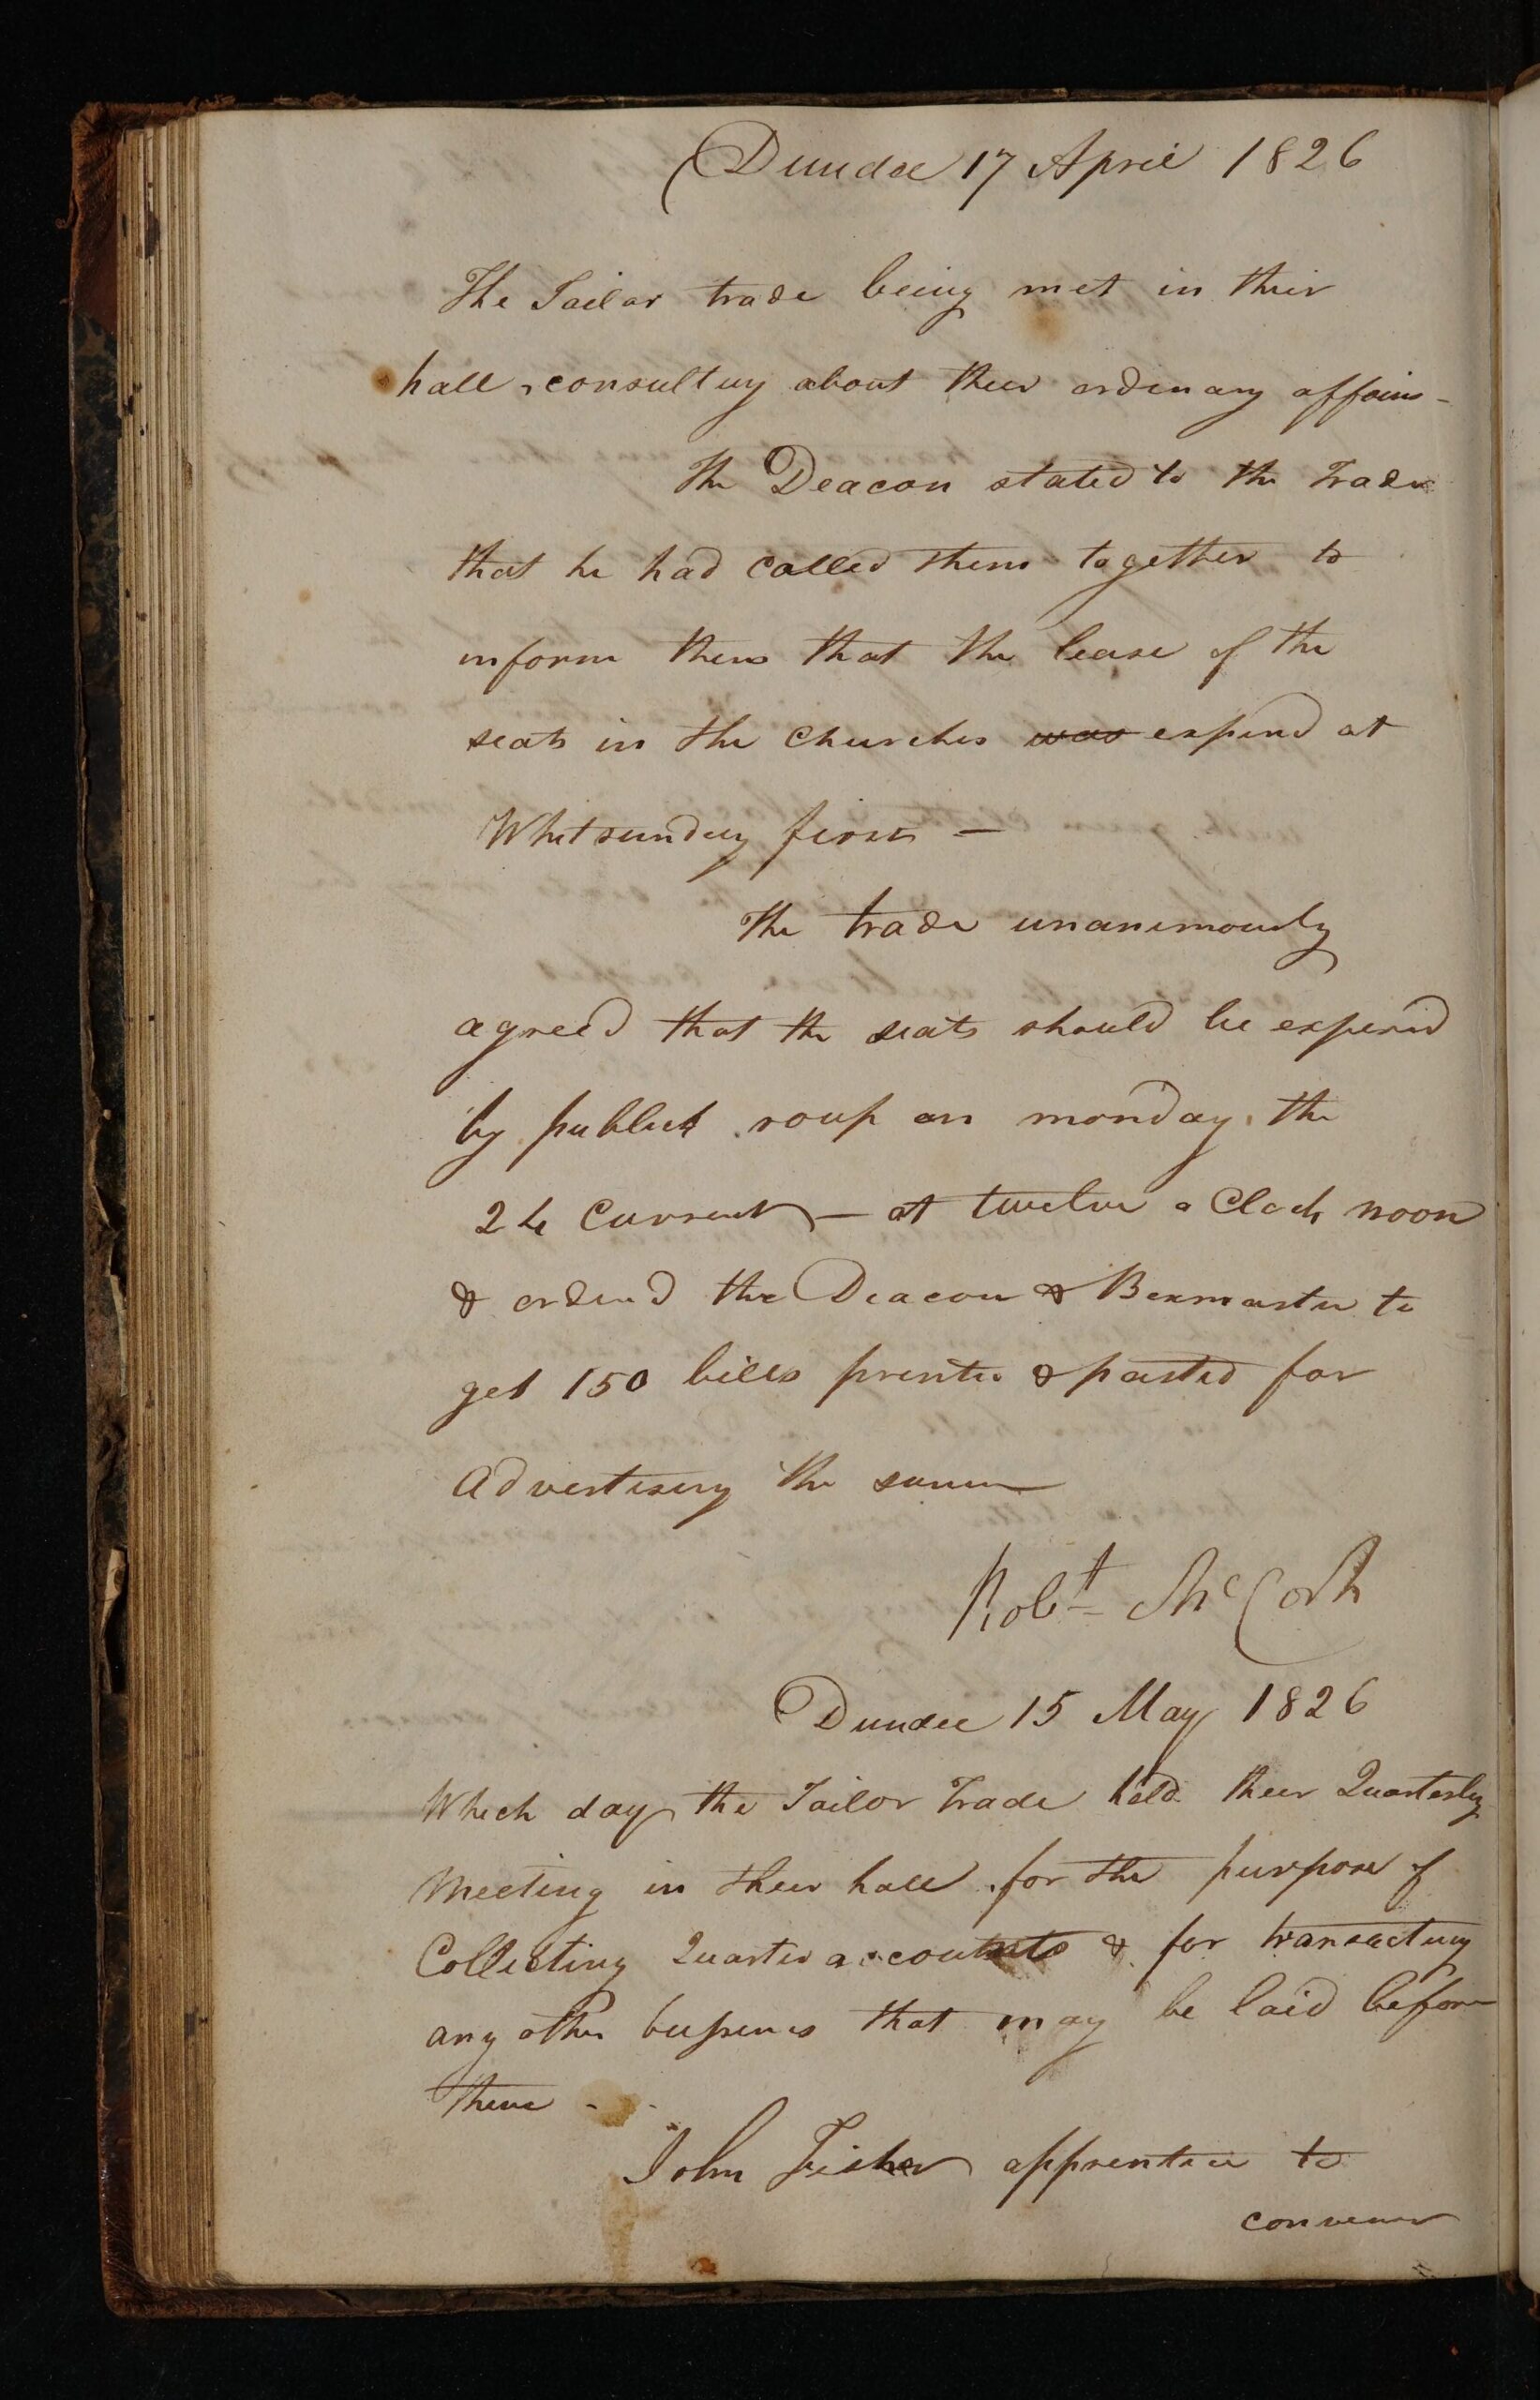 Dundee 17 April 1826
The Tailor trade being met in their
hall consulting about their ordinary affairs -
The Deacon stated to the Trade
that he had called them together to
inform them that the lease of the
seats in the Churches was expired at
Whitsunday first -
The trade unanimously
agreed that the seats should be expired
by publick roup on monday the
24 Current - at twelve o Clock noon
& ordend the Deacon & Boxmaster to
get 150 bills printed & pasted for
Advertising the same
Robt McCosh
Dundee 15 May 1826
Which day the Tailor Trade held their Quarterly
Meeting in their hall for the purpose of
Collecting Quarter accounts & for transacting
any other business that may be laid before
them -
John Fisher apprentice to
convener